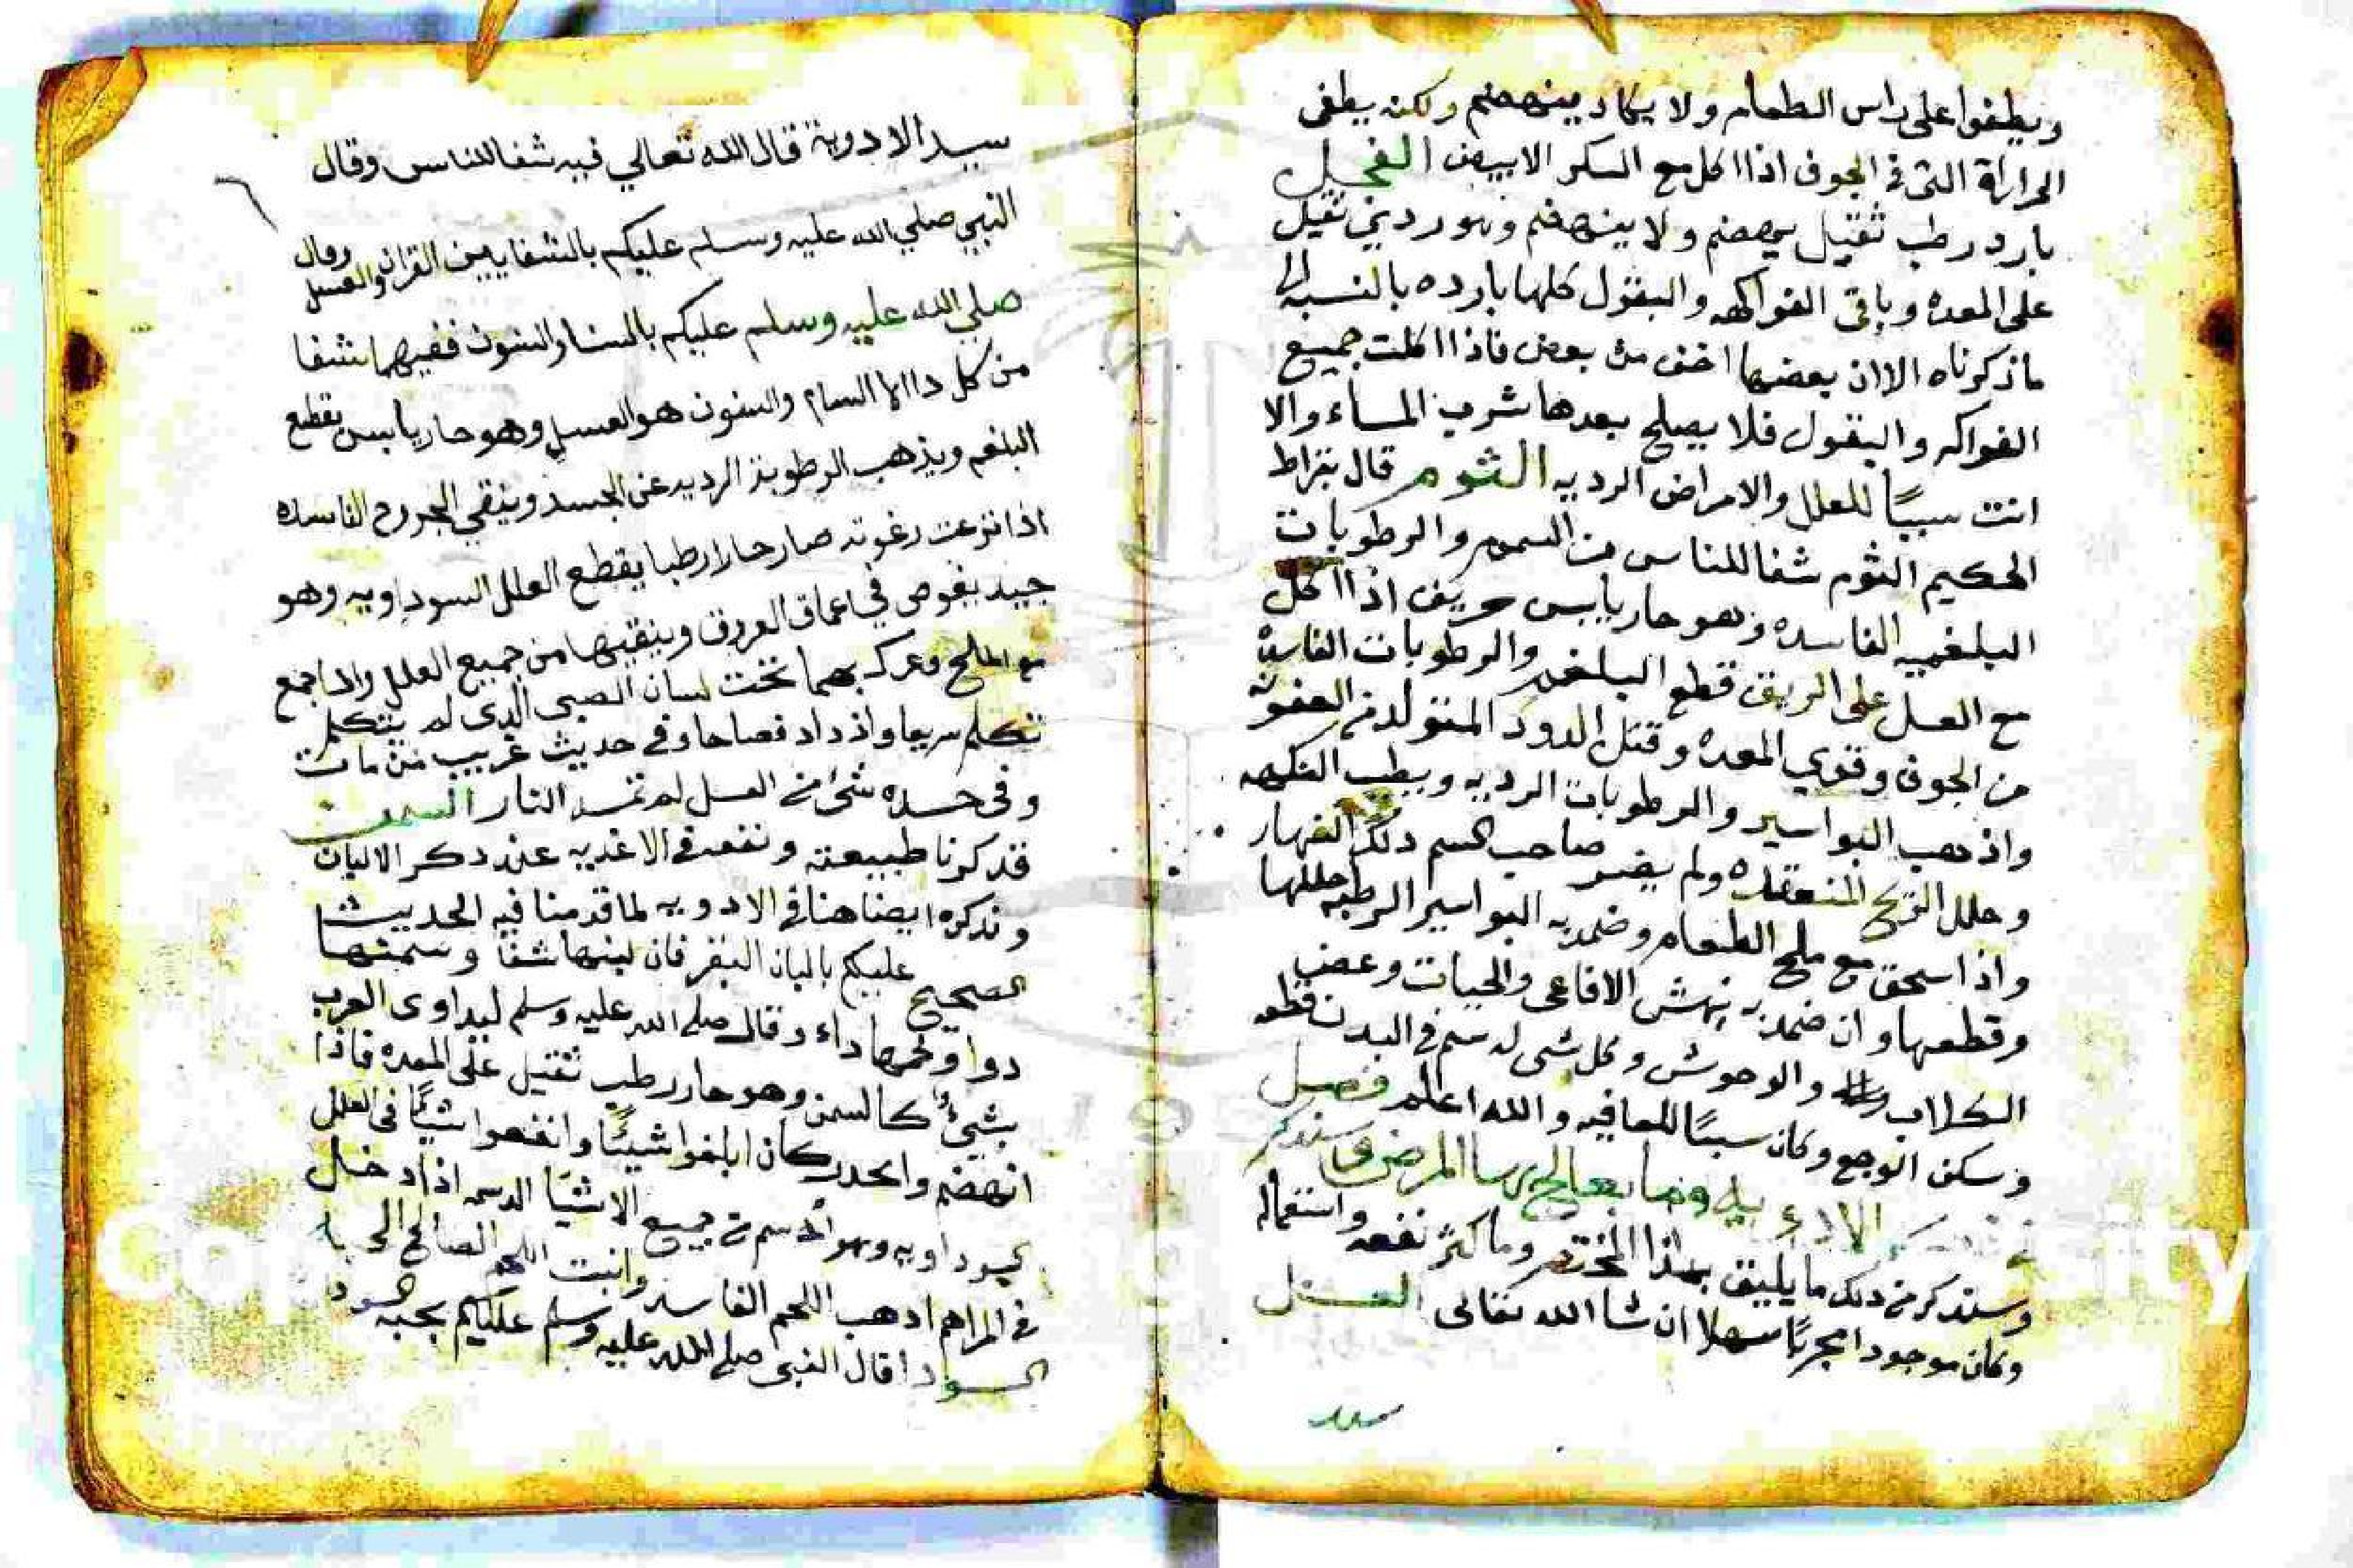 ويطفوا على راس الطعام ولا يكاد ينهضم ولكنه يطفى
الحرارة التى فى الجوف اذا اكل مع السكر الابيض الفجل
بارد رطب ثقيل يهضم ولا ينهضم وهو ردي ثقيل
على المعده وباقى الفواكهه والبقول كلها بارده بالنسبه الى
ما ذكرناه الا ان بعضها اخف من بعض فاذا اكلت جميع
الفواكه والبقول فلا يصلح بعدها شرب الماء والا
انت سببًا للعلل والامراض الرديه الثوم قال بقراط
الحكيم الثوم شفا للناس من السموم والرطوبات
البلغميه الفاسده وهو حار يابس حريف اذا اكل
مع العسل على الريق قطع البلغم والرطوبات الفاسده
من الجوف وقوي المعده وقتل الدود المتولد من العفونه
واذهب البواسير والرطوبات الرديه ويطيب النكهه
وحلل الريح المنعقده ولم يضر صاحب السم ذلك النهار
واذا سحق مع ملح الطعام وضمد به البواسير الرطبه حللها
وقطعها وان ضمد به نهش الافاعى والحيات وعض
الكلاب والوحوش وكل شى له سم فى البدن قطعه
وسكن الوجع وكان سببًا للعافيه والله اعلم فصل
الادويه وما يعالج بها المرضى سنذكر
وسنذكر من ذلك ما يليق بهذا المختصر وما كثر نفعه واستعماله
وكان موجودا مجربًا سهلا ان شا الله تعالى العسل
سيد
سيد الادوية قال الله تعالي فيه شفا للناس وقال
النبي صلي الله عليه وسلم عليكم بالشفايين القران والعسل وقال
صلي الله عليه وسلم عليكم بالسنا والسنوت ففيهما شفا
من كل داا الا السام والسنوت هو العسل وهو حار يابس يقطع
البلغم ويذهب الرطوبة الرديه عن الجسد وينقي الجروح الفاسده
اذا نزعت رغوته صار حارا رطبا يقطع العلل السوداويه وهو
جيد يغوص في اعماق العروق وينقيها من جميع العلل واذا جمع
مع الملح وعرك بهما تحت لسان الصبى الذى لم يتكلم
تكلم سريعا واذداد فصاحا وفى حديث غريب من مات
وفى جسده شئ من العسل لم تمسه النار السمن
قد ذكرنا طبيعته ونفعه فى الاغذيه عند ذكر الالبان
ونذكره ايضا هنا فى الادويه لما قدمنا فيه الحديث
الصحيح عليكم بالبان البقر فان لبنها شفا وسمنها
دوا ولحمها داء وقال صلى الله عليه وسلم لم يداوى العرب
بشئ كالسمن وهو حار رطب ثقيل على المعده فاذا
انهضم وانحدر كان ابلغوا شيئًا وانفعوا شيئًا فى العلل
السوداويه وهو ادسم من جميع الاشيا الدسمه اذا دخل
فى المراهم اذهب اللحم الفاسد وانبت اللحم الصالح الحبه
السودا قال النبى صلى الله عليه وسلم عليكم بحبه سودا